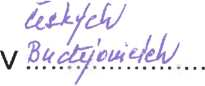 českých
V Budějovicích